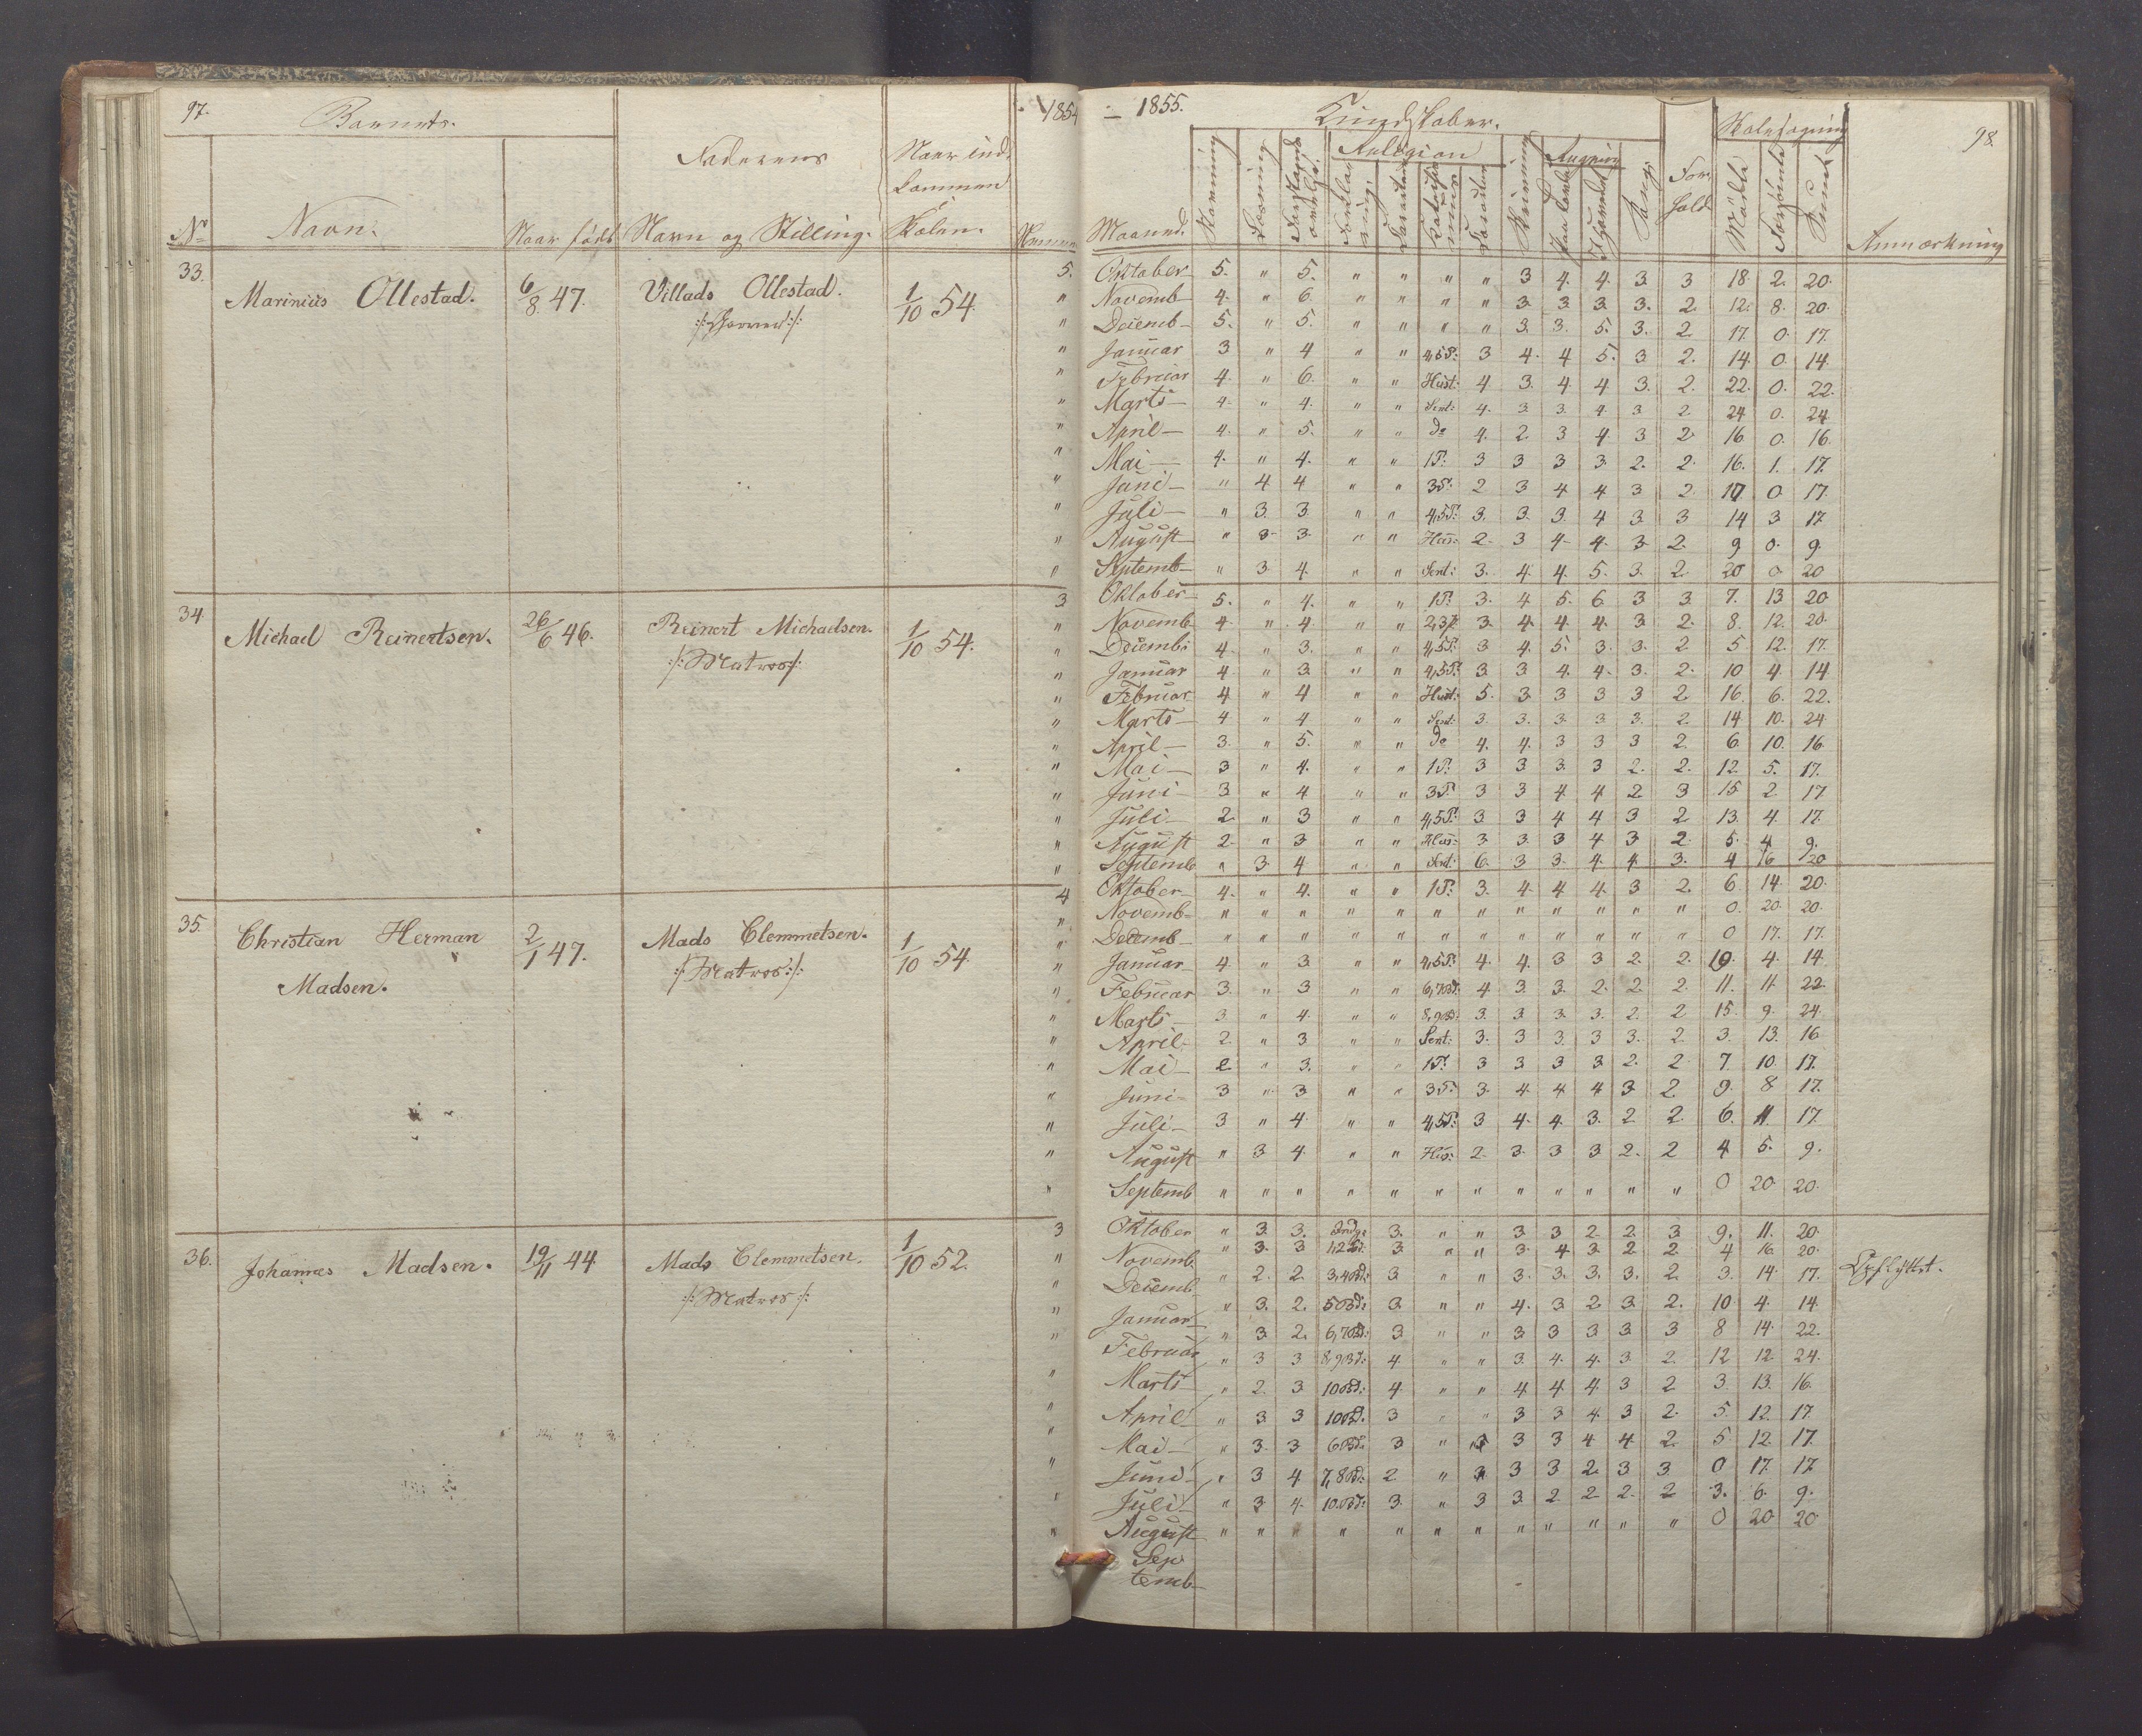 97.
Barnets.
Faderens
Naar ind-
kommen
i
1854
Nº
Navn.
Naar født
Navn og Stilling.
Skolen.
33.
Marinius Ollestad.
6/8 47.
Villads Ollestad.
1/10 54.
5.
34.
Michael Reinertsen.
26/6 46.
Reinert Michaelsen.
/:Matros:/
1/10 54.
3
35.
Christian Herman
Madsen.
2/1 47.
Mads Clemmetsen.
/:Matros:/
1/10 54.
4
36.
Johannes Madsen.
19/11 44.
Mads Clemmetsen.
/:Matros:/
1/10 52.
3
– 1855.
Kundskaber.
Skolesøgning
98.
Religion
Regning
Maaned.
Skrivning
Læsning
Sang
For-
hold
Mødt
Forsømt
Sum
Anmærkning
Oktober 5. " 5. " " " " 3 4. 4. 3. 3 18 2. 20.
Novemb 4. " 6. " " " " 3. 3. 3. 3. 2. 12. 8. 20.
Decemb 5. " 5. " " " " 3. 3. 5. 3. 2. 17. 0. 17.
Januar 3 " 4 " " 4,5P: 3 4. 4 5. 3 2. 14. 0. 14.
Februar 4. " 6. " " Hust: 4. 3. 4. 4 3. 2. 22. 0. 22.
Marts 4. " 4. " " Sent: 4. 3. 3. 4. 3 2. 24 0. 24
April 4. " 5. " " do 4. 2. 3 4. 3 2. 16 0. 16.
Mai 4. " 4. " " 1P: 3 3 3 3. 2. 2. 16. 1. 17.
Juni " 4 4 " " 3P: 2 3 4 4 3 2. 17 0 17.
Juli " 3. 3. " " 4,5P: 3. 3. 3. 4 3 3 14 3 17
August " 3. 3. " " Hus: 2. 3 4. 4. 3. 2. 9 0. 9.
Septemb " 3. 4. " " Sent: 3. 4. 4. 5. 3. 2. 20 0 20
Oktober 5. " 4. " " 1P: 3. 4 5. 6. 3 3. 7. 13 20
Novemb 4. " 4. " " 2,3P: 3. 4. 4. 4. 3 2. 8. 12. 20.
Decemb 4. " 3. " " 4,5P: 3 4. 5. 3. 3. 2 5 12. 17.
Januar 4. " 3. " " 4,5P: 3 3 4. 4. 3. 2. 10 4. 14
Februar 4 " 4 " " Hust: 5. 3 3 3 3 2. 16. 6. 22.
Marts 4 " 4 " " Sent: 3. 3. 3. 3. 3. 2. 14 10. 24
April 3. " 5. " " do 4. 4. 3 3 3 2. 6. 10. 16
Mai 3 " 4. " " 1P: 3 3 3. 3 2. 2. 12. 5. 17.
Juni 3 " 4 " " 3P: 3 3 4 4 2 3 15 2 17
Juli 2 " 3 " " 4,5P: 3 3 4 4 3 2 13. 4. 17.
August 2. " 3 " " Hus: 3. 3. 3 4 3 2 5. 4 9.
Septemb " 3. 4 " " Sent: 6. 3 3. 4. 4. 3. 4 16 20
Oktober 4. " 4. " " 1P: 3. 4. 4 4. 3 2. 6. 14. 20.
Novemb " " " " " " " " " " " " 0. 20. 20.
Decemb " " " " " " " " " " " " 0 17. 17.
Januar 4. " 3. " " 4,5P: 4. 4. 3 3 2. 2. 10. 4. 14.
Februar 3. " 3 " " 6,7Bd: 4 3. 3. 2. 2. 2. 11. 11. 22
Marts 3. " 4. " " 8,9Bd: 3. 3. 3. 3. 2. 2 15. 9. 24.
April 2. " 3 " " Sent: 3. 3 3. 3 3. 2. 3. 13. 16
Mai 2. " 3. " " 1P: 3 3 3 3 2. 2. 7. 10. 17.
Juni 3 " 3 " " 3P: 3. 4. 4 4 3 2. 9. 8 17.
Juli 3 " 4. " " 4,5P: 3 4. 4. 3. 2. 2. 6. 11. 17.
August " 3 4. " " Hus: 2. 3. 3 3 2. 2 4 5. 9.
Septemb " " " " " " " " " " " " 0 20 20.
Oktober " 3. 3. 3. " " 3 3 2. 2. 3. 9. 11. 20.
Novemb " 3. 3 3 " " 3. 4 3. 2 2. 4 16. 20.
Decemb " 2. 2. 3,4Bd: 3 " " 3. 3. 3. 3. 2. 3. 14. 17. Opflyttet.
Januar " 3. 2. 5Bd: 3. " " 4. 3 2. 3. 2. 10 4. 14
Februar " 3 2. 6,7Bd: 3 " " 3 3 3 3. 3 8 14. 22.
Marts " 3 3 8,9Bd: 4. " " 3. 4. 4. 3. 2. 12 12. 24.
April " 2. 3. 10Bd: 4. " " 4 4 4. 3 2 3. 13. 16.
Mai " 3 3 10Bd: 3 " " 3 3 4. 3 2. 5 12. 17.
Juni " 3. 3 6Bd: 3 " 3 3 3 4 4. 2. 5 12. 17.
Juli " 3 4 7,8Bd: 2 " 3 3 3 2. 3 3 0 17. 17
August " 3. 4. 10Bd: 3. " 3 3. 2. 2. 2. 2 3. 6. 9.
Sep
temb " " " " " " " " " " " " 0 20 20.